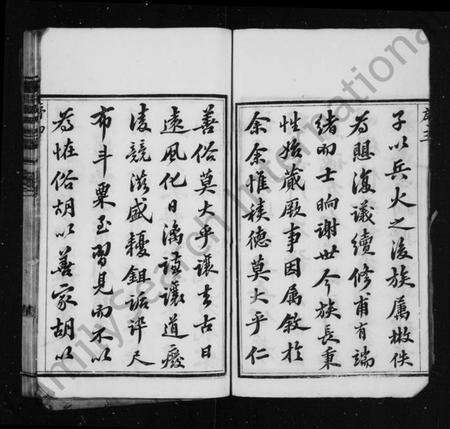 序三
子以兵火之後族属散佚
為復議續修甫有端
緒而士晌謝世今族長秉
性始蕆厥事因属敘於
余余惟積德莫大乎仁
善俗莫大乎讓去古日
遠風化日漓謙讓道廢
淩競滋盛耰鉏詬誶尺
布斗粟至習見而不以
為恠俗胡以善家胡以
FamilySearch International